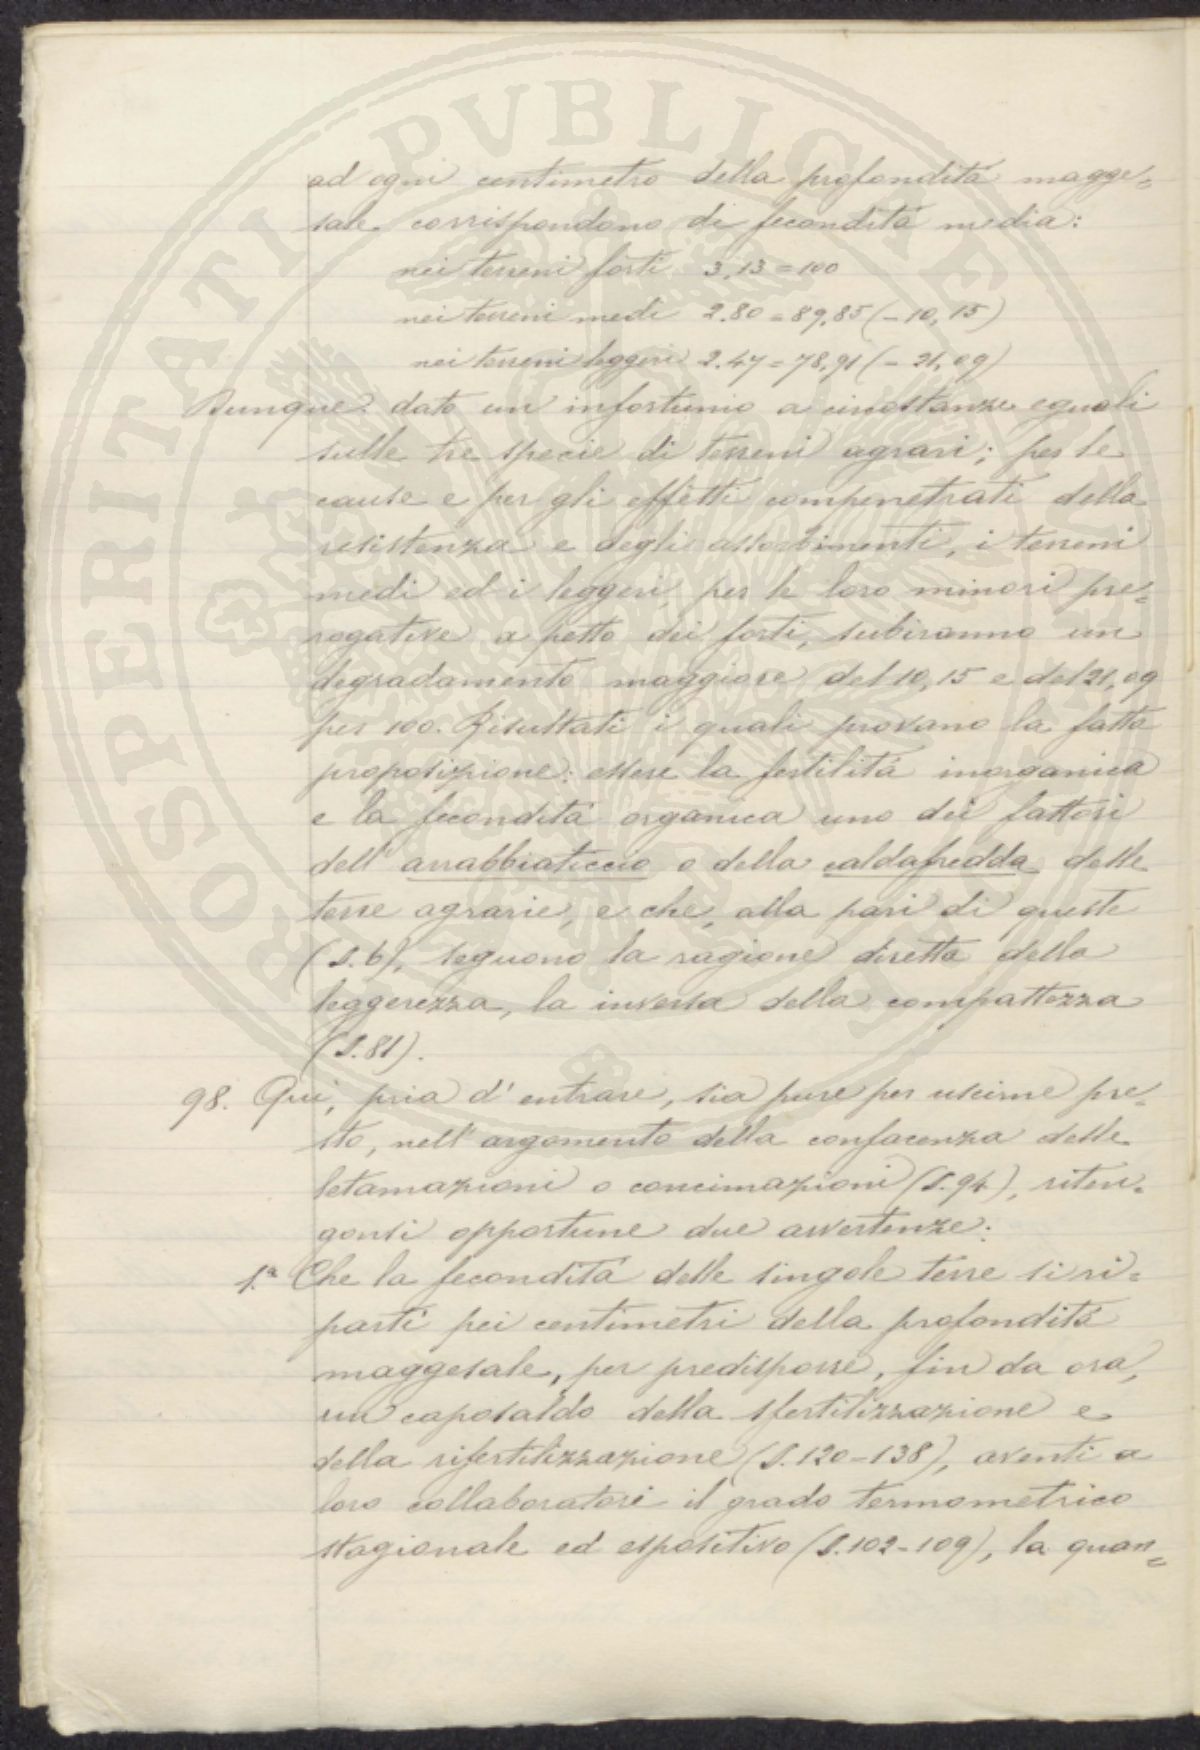 ad ogni centimetro della profondità magge=
sale corrispondono di fecondità media:
nei terreni forti 3,13 = 100
nei terreni medi 2.80 = 89,85 (- 10,15)
nei terreni leggeri 2.47 = 78,91 (- 21,09)
Dunque: dato un infortunio a circostanze eguali
sulle tre specie di terreni agrari; per le
cause e per gli effetti compenetrati della
resistenza e degli assorbimenti, i terreni
medi ed i leggeri, per le loro minori pre=
rogative a petto dei forti, subiranno un
degradamento maggiore del 10,15 e del 21,09
per 100. Risultati i quali provano la fatta
proposizione: essere la fertilità inorganica
e la fecondità organica uno dei fattori
dell'arrabbiaticcio o della caldafredda delle
terre agrarie, e che, alla pari di queste
(S.6), seguono la ragione diretta della
leggerezza, la inversa della compattezza
(S.81).
98. Qui, pria d'entrare, sia pure per uscirne pre=
sto, nell'argomento della confacenza delle
letamazioni o concimazioni (S.94), riten=
gonsi opportune due avvertenze:
1.ª Che la fecondità delle singole terre si ri=
partì pei centimetri della profondità
maggesale, per predisporre, fin da ora,
un caposaldo della sfertilizzazione e
della rifertilizzazione (S.120-138), aventi a
loro collaboratori il grado termometrico
stagionale ed espositivo (S.102-109), la quan=
ROSPERITATI PVBLICAE